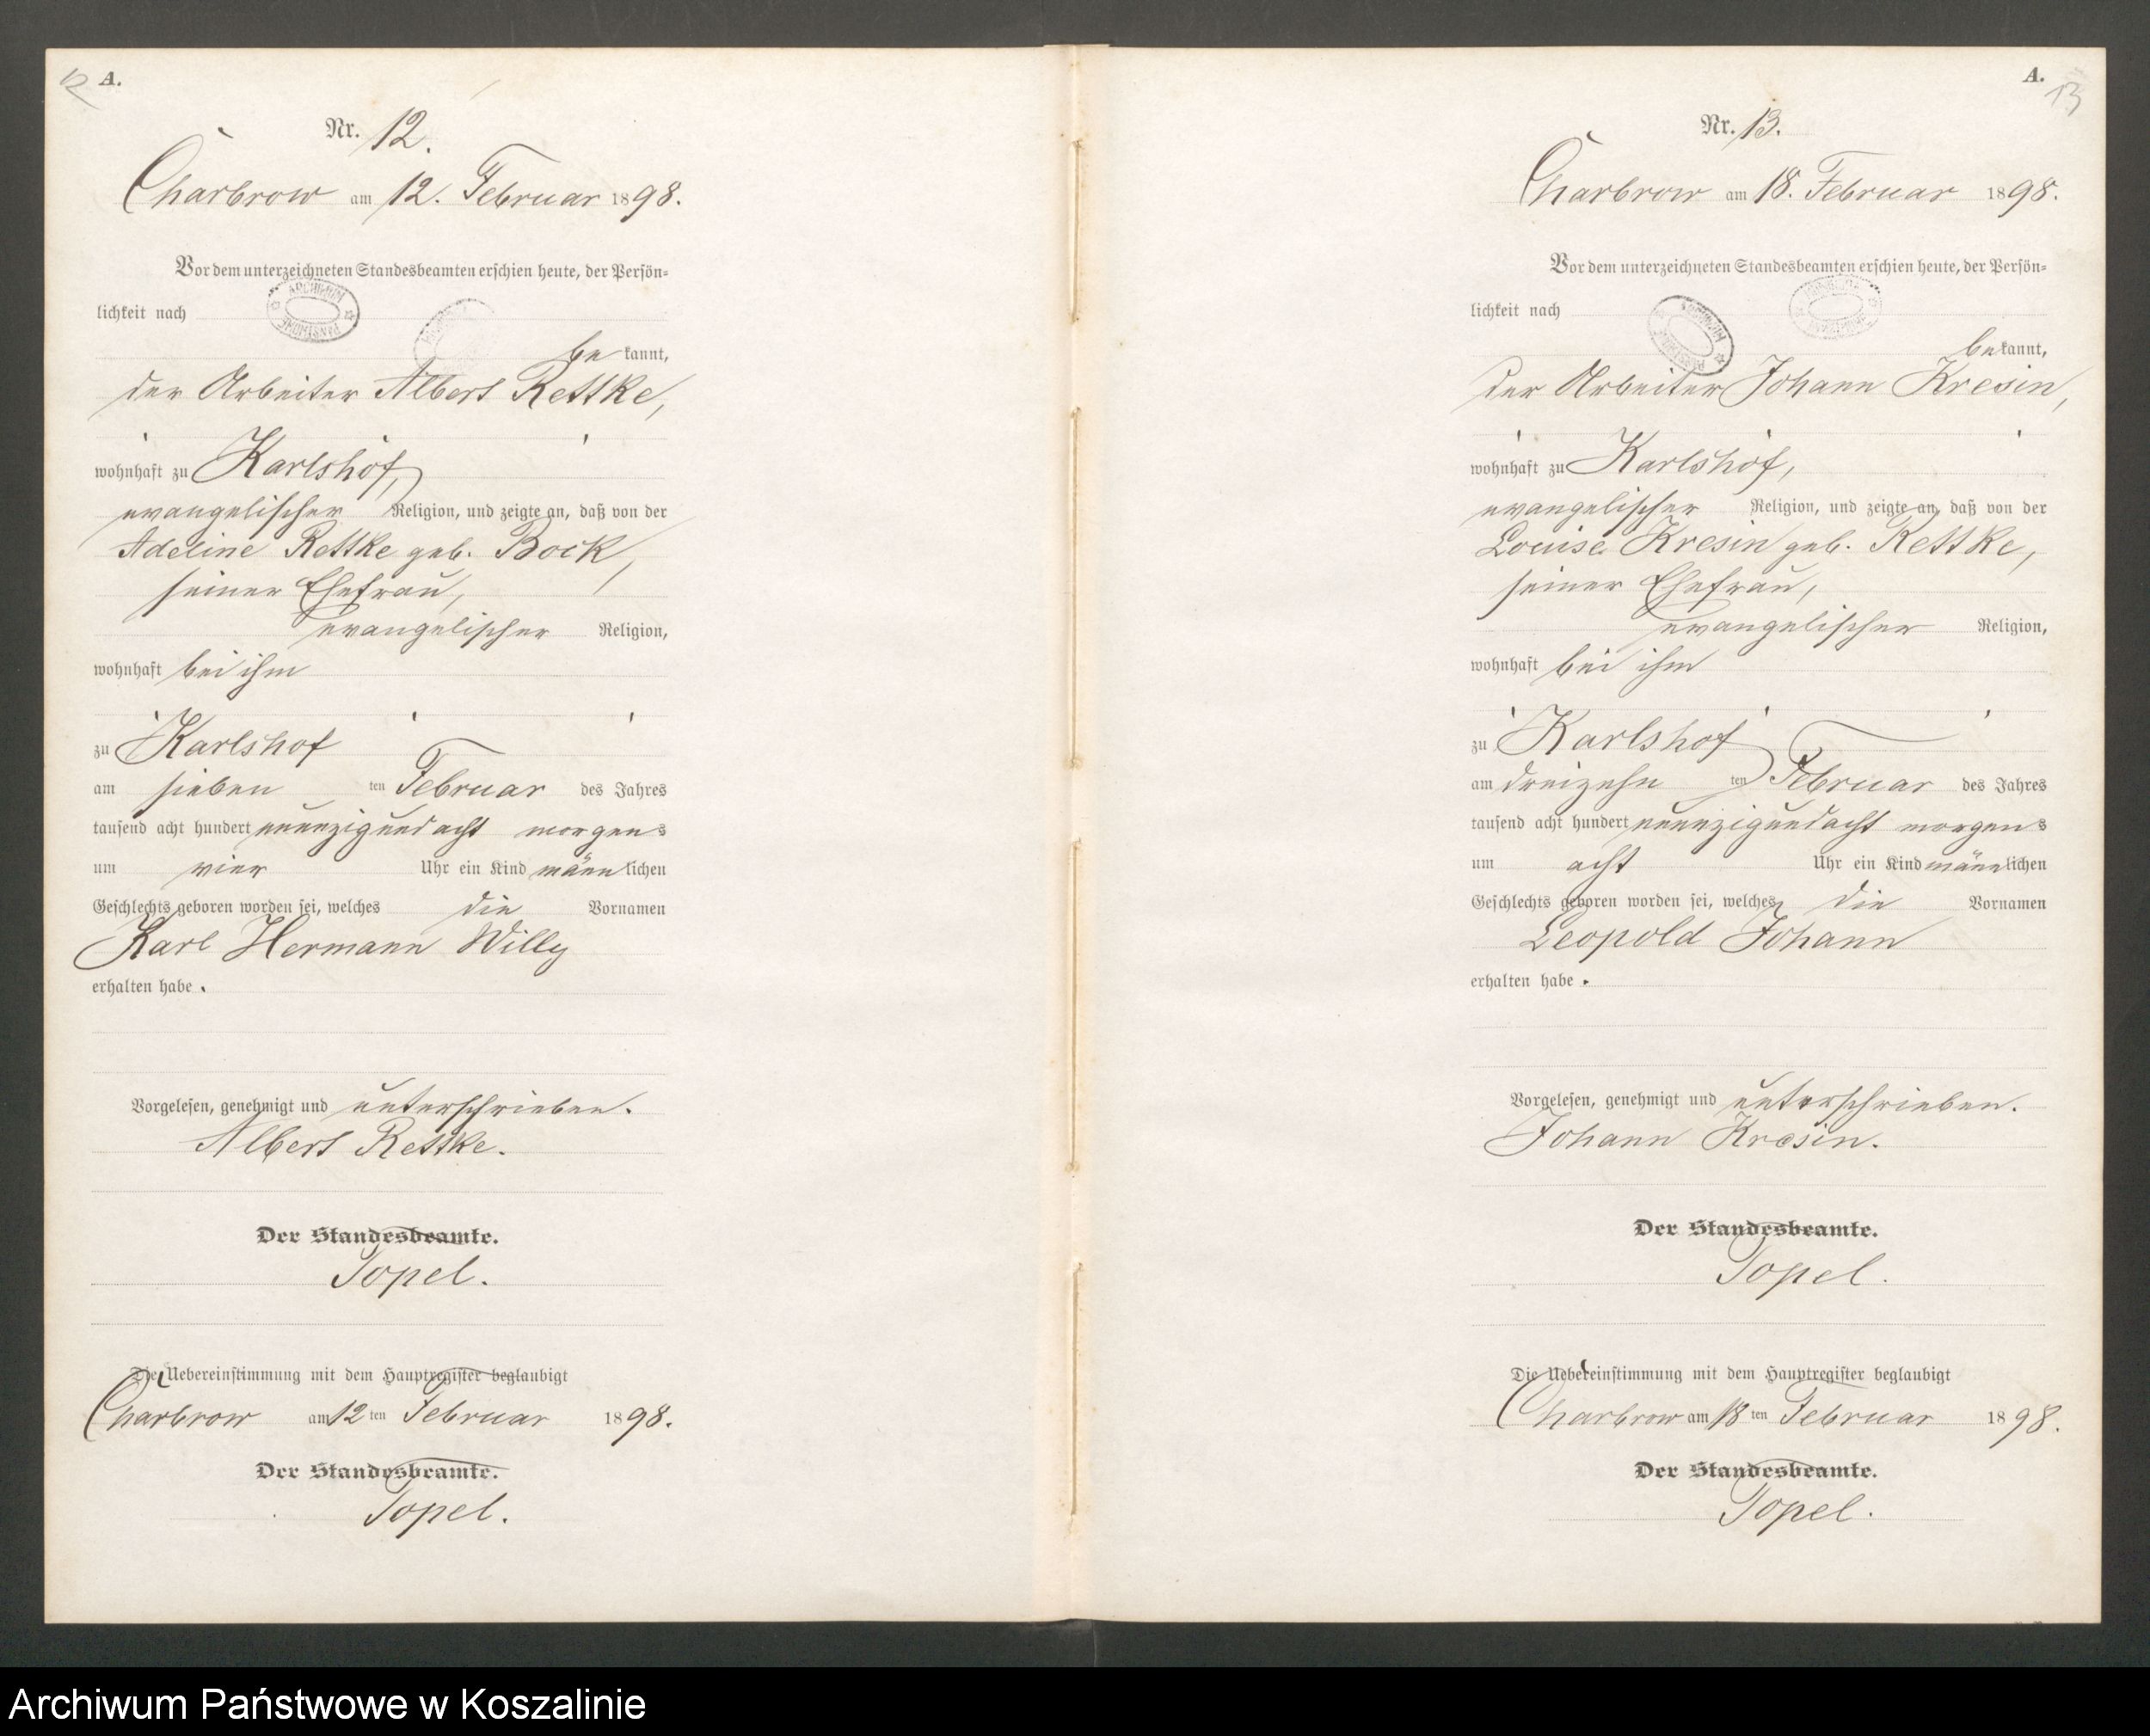 12
A.
Nr. 12.
Charbrow am 12. Februar 1898.
Vor dem unterzeichneten Standesbeamten erschien heute, der Persön-
lichkeit nach
ARCHIWUM
PAŃSTWOWE
bekannt,
der Arbeiter Albert Rettke,
wohnhaft zu Karlshof,
evangelischer Religion, und zeigte an, daß von der
Adeline Rettke geb. Bock,
seiner Ehefrau,
evangelischer Religion,
wohnhaft bei ihm
zu Karlshof
am sieben ten Februar des Jahres
tausend acht hundert neunzigundacht morgens
um vier Uhr ein Kind männlichen
Geschlechts geboren worden sei, welches die Vornamen
Karl Hermann Willy
erhalten habe.
Vorgelesen, genehmigt und unterschrieben.
Albert Rettke.
Der Standesbeamte.
Topel.
Die Uebereinstimmung mit dem Hauptregister beglaubigt
Charbrow am 12 ten Februar 1898.
Der Standesbeamte.
Topel.
A.
13
Nr. 13.
Charbrow am 18. Februar 1898.
Vor dem unterzeichneten Standesbeamten erschien heute, der Persön-
lichkeit nach
ARCHIWUM
PAŃSTWOWE
bekannt,
der Arbeiter Johann Kresin,
wohnhaft zu Karlshof,
evangelischer Religion, und zeigte an, daß von der
Louise Kresin geb. Rettke,
seiner Ehefrau,
evangelischer Religion,
wohnhaft bei ihm
zu Karlshof
am dreizehn ten Februar des Jahres
tausend acht hundert neunzigundacht morgens
um acht Uhr ein Kind männlichen
Geschlechts geboren worden sei, welches die Vornamen
Leopold Johann
erhalten habe.
Vorgelesen, genehmigt und unterschrieben.
Johann Kresin.
Der Standesbeamte.
Topel.
Die Uebereinstimmung mit dem Hauptregister beglaubigt
Charbrow am 18 ten Februar 1898.
Der Standesbeamte.
Topel.
Archiwum Państwowe w Koszalinie